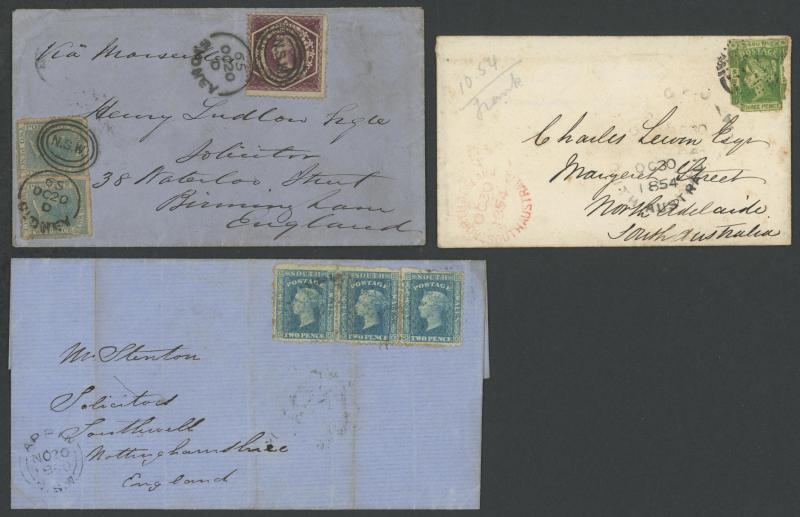 Via Marseilles
SYDNEY
OC 20
65
N.S.W
Henry Ludlow Esqre
Solicitor
38 Waterloo Street
Birmingham
England
N.S.W
SYDNEY
OC 20
65
10.54
Frank
SOUTH
POSTAGE
THREE PENCE
Charles Lewin Esqr
Margaret Street
North Adelaide
South Australia
OC 30
1854
OC 30
1854
SOUTH
POSTAGE
TWO PENCE
SOUTH
POSTAGE
TWO PENCE
SOUTH
POSTAGE
TWO PENCE
Mr. Stenton
Solicitors
Southwell
Nottinghamshire
England
APPIN
NO 20
1860
N.S.W